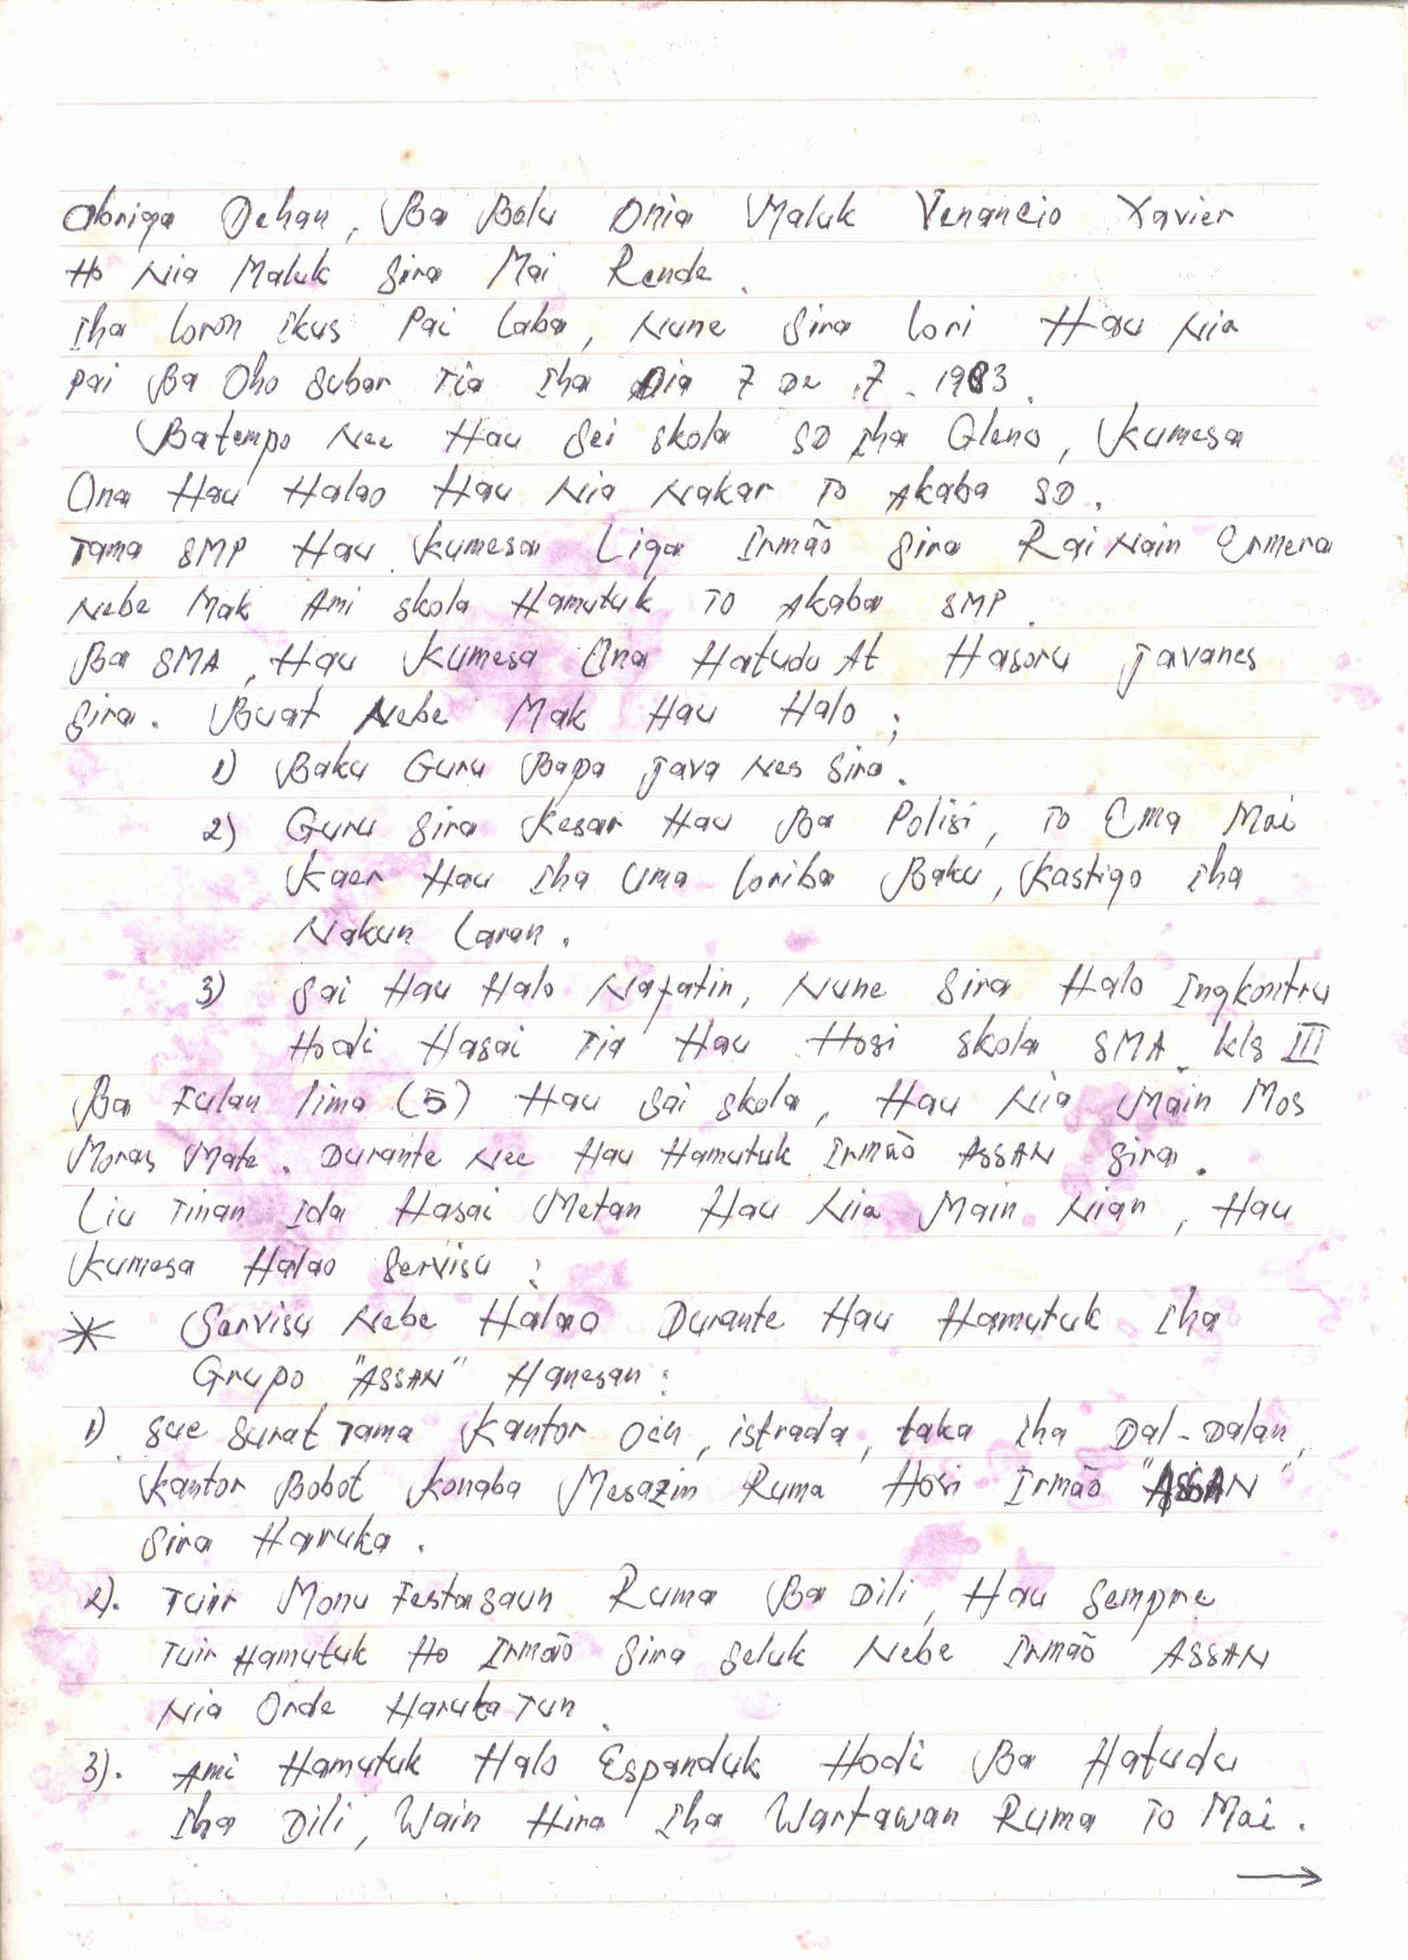 Obriga Dehan, Ba Bolu Onia Maluk Venancio Xavier
Ho Nia Maluk Sira Mai Rende.
Iha loron Ikus Pai Laba, Nune Sira lori Hau Nia
Pai Ba Oho Subar Tia Iha Dia 7 De .7 - 1983.
Batempo Nee Hau Sei skola SD Iha Gleno, Kumesa
Ona Hau Halao Hau Nia Nakar To Akaba SD.
Tama SMP Hau Kumesa Liga Irmão Sira Rai Nain Ermera
Nebe Mak Ami skola Hamutuk TO Akaba SMP.
Ba SMA, Hau Kumesa Ona Hatudu At Hasoru Javanes
Sira. Buat Nebe Mak Hau Halo;
1) Baku Guru Bapa Java Nes Sira.
2) Guru Sira Kesar Hau Ba Polisi, To Ema Mai
Kaer Hau Iha Uma loriba Baku, Kastigo Iha
Nakun Laran.
3) Sai Hau Halo Nafatin, Nune Sira Halo Ingkontru
Hodi Hasai Tia Hau Hosi skola SMA kls III
Ba Fulan lima (5) Hau Sai skola, Hau Nia Main Mos
Moras Mate. Durante Nee Hau Hamutuk Irmão ASSAN Sira.
Liu Tinan Ida Hasai Metan Hau Nia Main Nian, Hau
Kumesa Halao Servisu:
* Servisu Nebe Halao Durante Hau Hamutuk Iha
Grupo "ASSAN" Hanesan:
1) Sue Surat Tama Kantor Oin, istrada, taka Iha Dal-Dalan,
Kantor Bobot Konaba Mesazin Ruma Hosi Irmão "ASSAN"
Sira Haruka.
2). Tuir Monu Festasaun Ruma Ba Dili, Hau Sempre
Tuir Hamutuk Ho Irmão Sira Seluk Nebe Irmão ASSAN
Nia Orde Haruka Tun.
3). Ami Hamutuk Halo Espanduk Hodi Ba Hatudu
Iha Dili, Wain Hira Iha Wartawan Ruma To Mai.
→